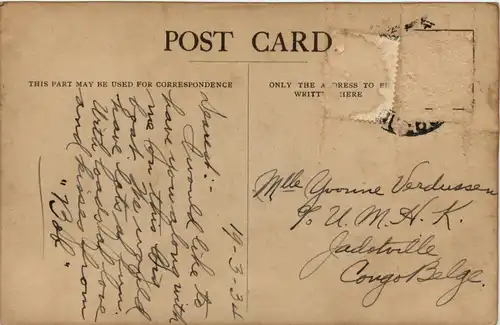 POST CARD
THIS PART MAY BE USED FOR CORRESPONDENCE
ONLY THE ADDRESS TO BE
WRITTEN HERE
19-3-34
Dearest:-
I would like to
have you along with
me on this big
boat. We would
have lots of fun.
With loads of love
and kisses from
"Bob"
Mlle Yvonne Verdussen
c/o U. M. H. K.
Jadotville
Congo Belge.